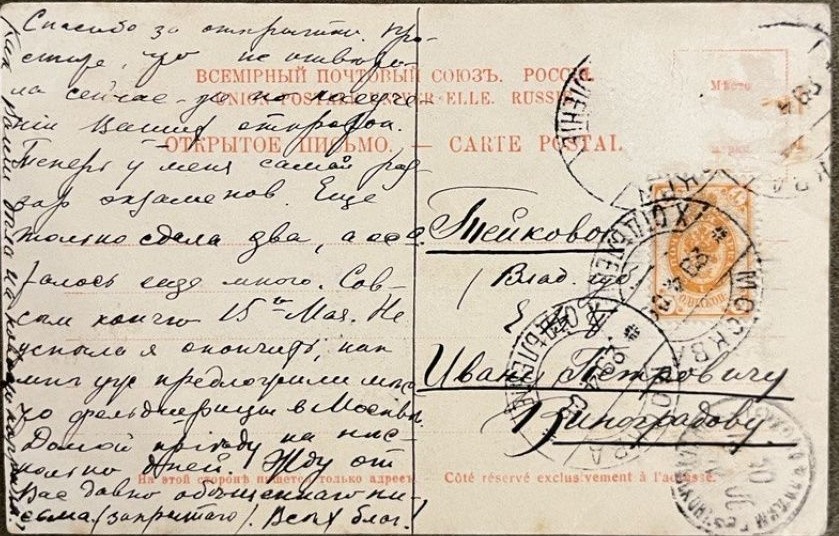 Спасибо за открытки. Про-
стите, что не ответи-
ла сейчас-же по
нiи Ваших открыток.
Теперь у меня самый раз-
гар экзаменов. Еще
только сдала два, а оста-
лось еще много. Сов-
сем кончу 15го Мая. Не
успела я окончить, как
мне уже предложили место
фельдшерицы в Москве.
Домой прiеду на нес-
колько дней. Жду от
Вас давно обещанного пи-
сьма (закрытого). Всех благ!
ВСЕМІРНЫЙ ПОЧТОВЫЙ СОЮЗЪ. РОССІЯ.
UNION POSTALE UNIVERSELLE. RUSSIE
ОТКРЫТОЕ ПИСЬМО. — CARTE POSTALE
Мѣсто
марки
Тейково
Влад. губ
Е. В.
Ивану Петровичу
Виноградову.
МОСКВА
На этой сторонѣ пишется только адресъ.
Côté réservé exclusivement à l'adresse.